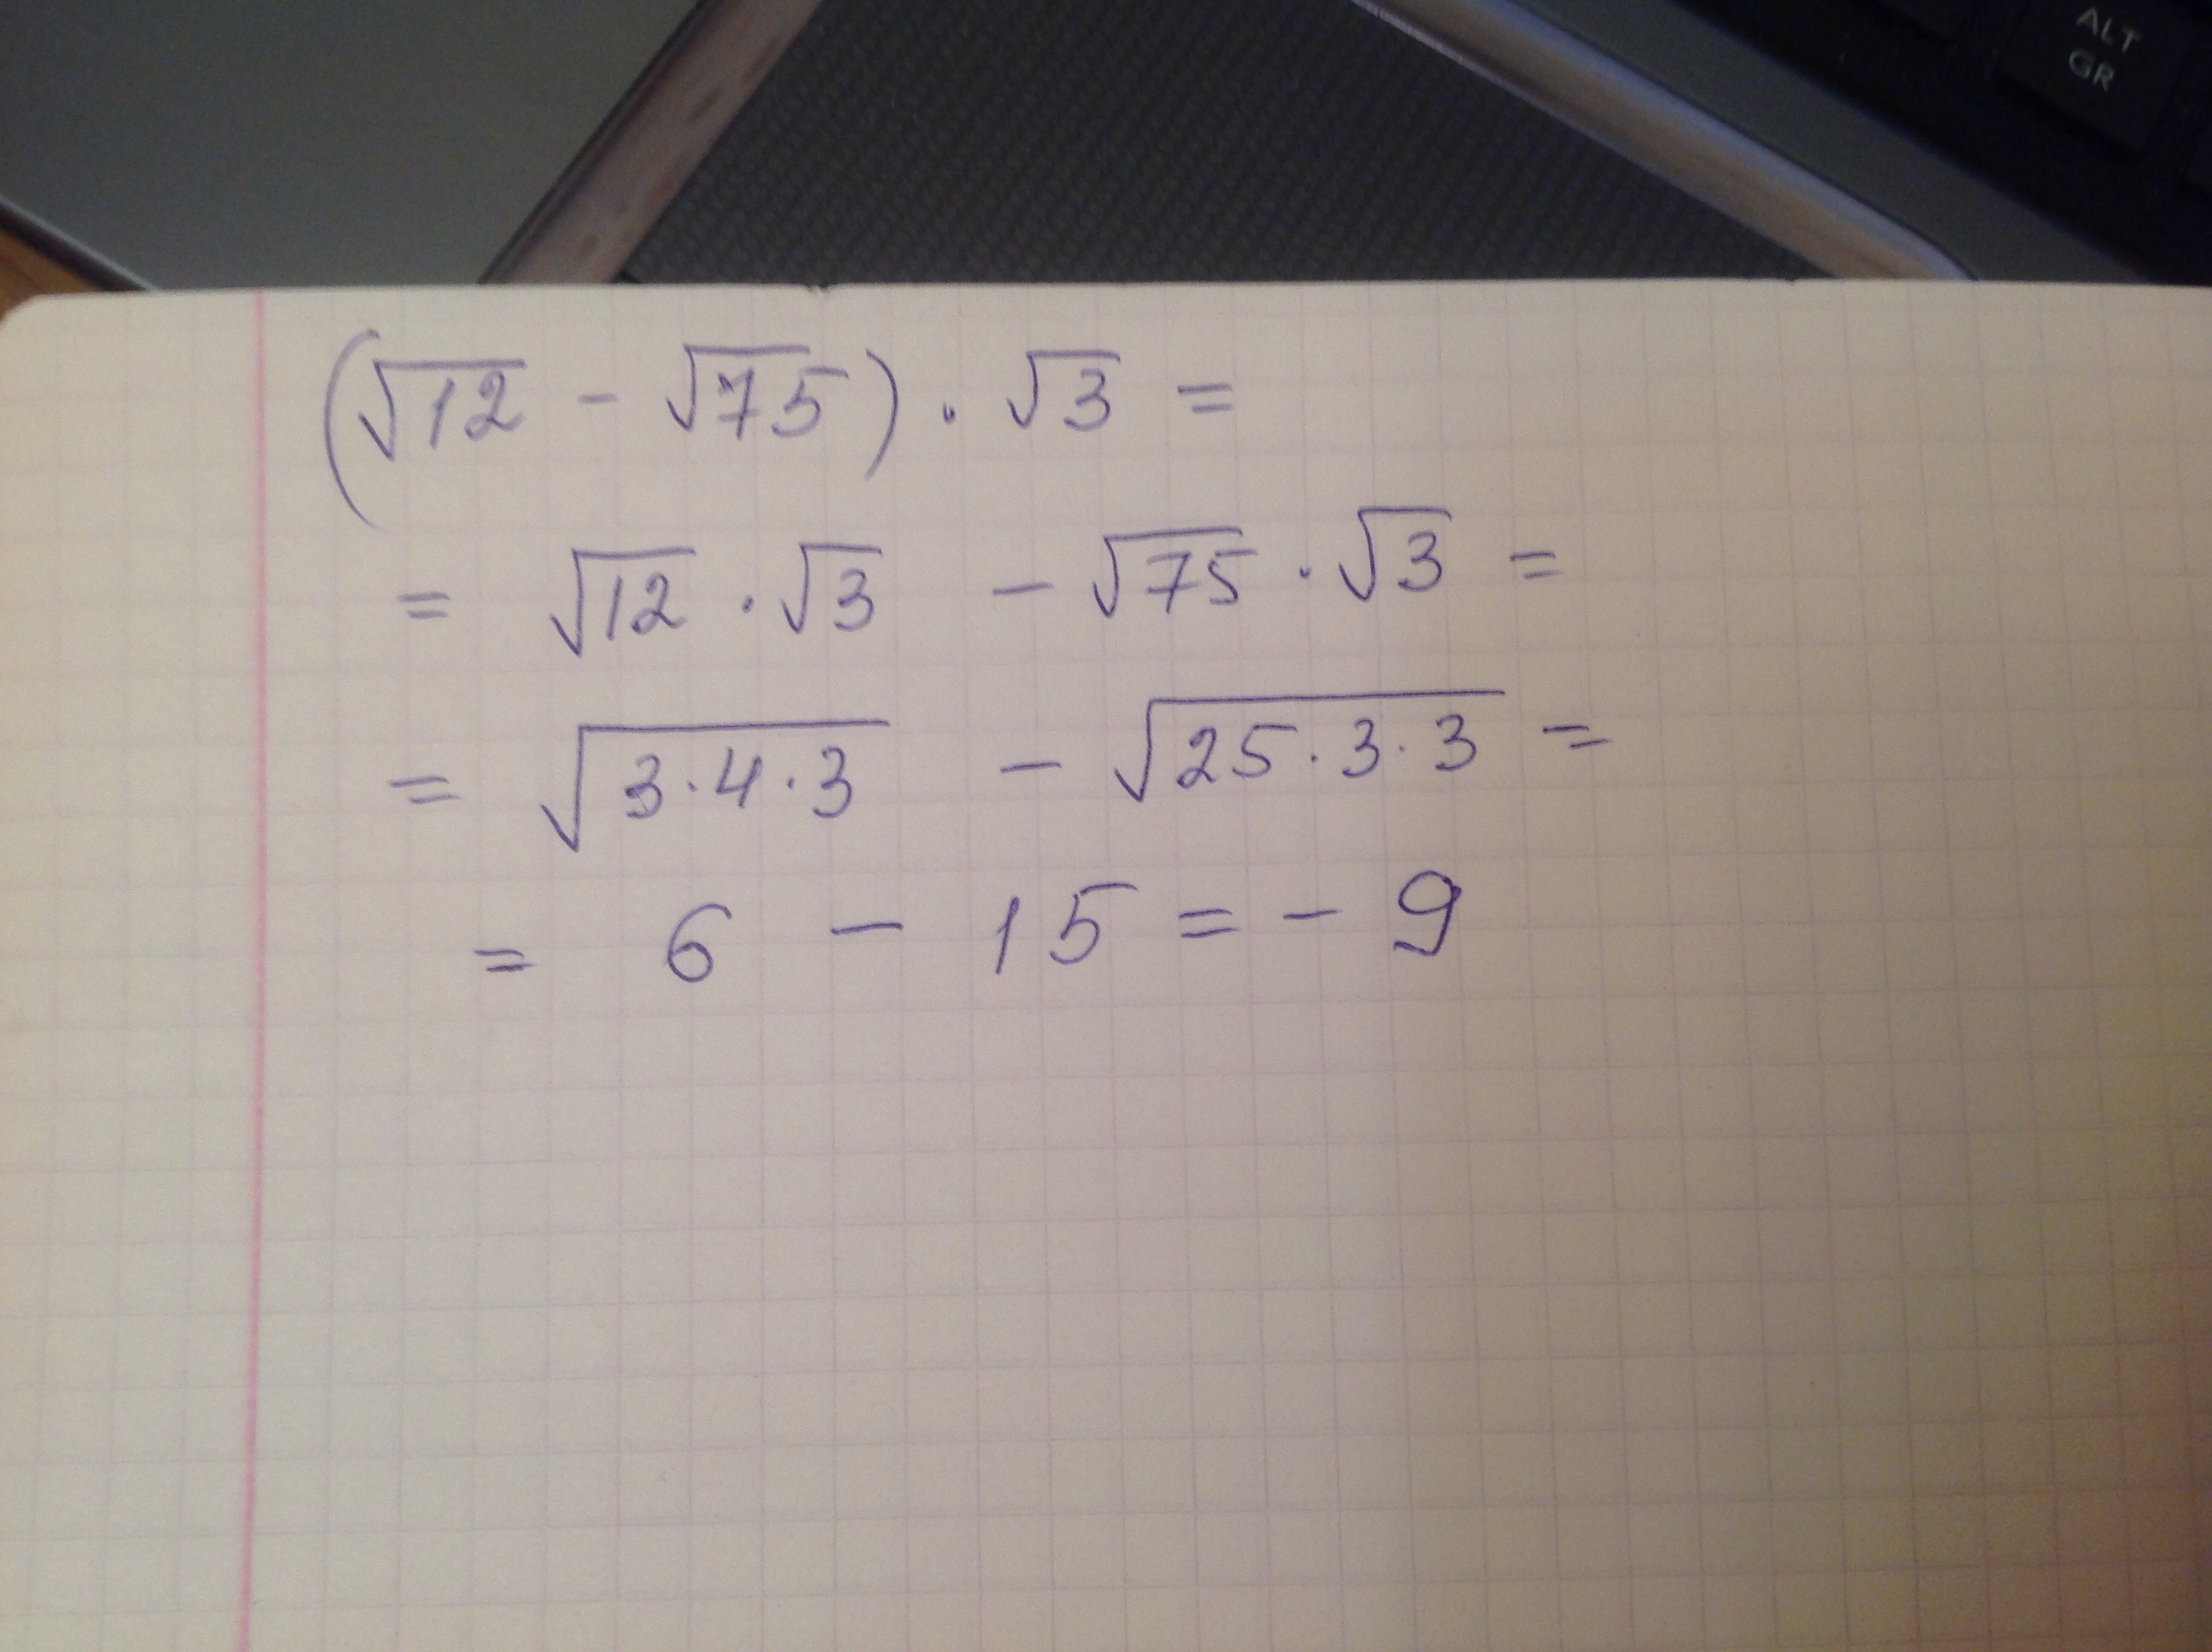 ALT
GR
(√12 - √75) · √3 =
= √12 · √3 - √75 · √3 =
= √3·4·3 - √25·3·3 =
= 6 - 15 = - 9